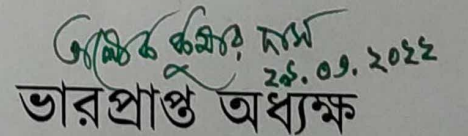 কুমার দাস
২৫.০১.২০২২
ভারপ্রাপ্ত অধ্যক্ষ